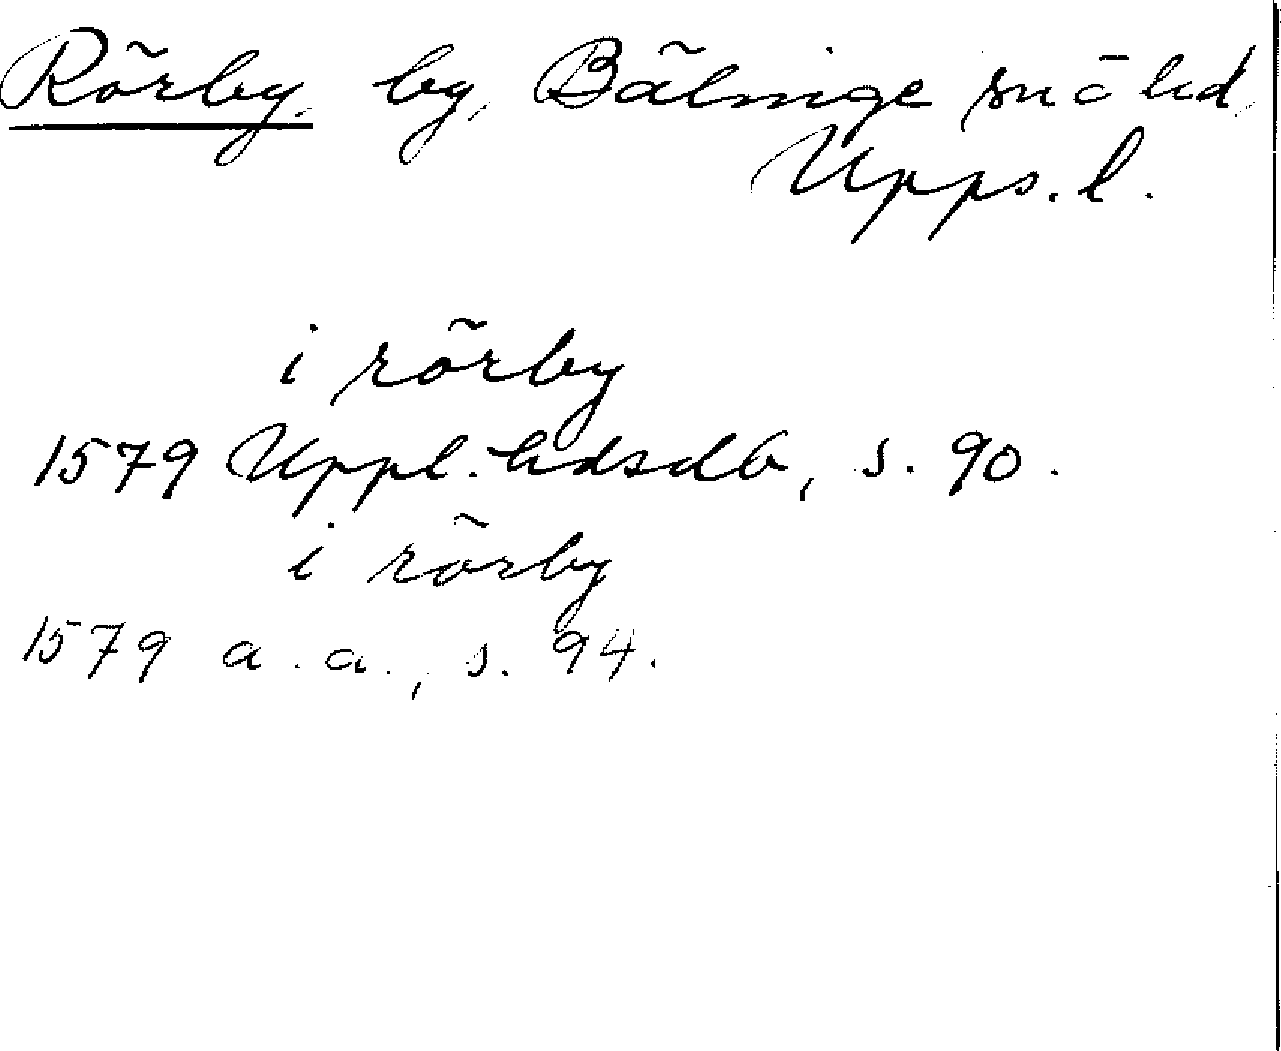 Rörby, by, Bälinge sn o hd,
Upps. l.
i rörby
1579 Uppl. hdsdb, s. 90.
i rörby
1579 a. a., s. 94.